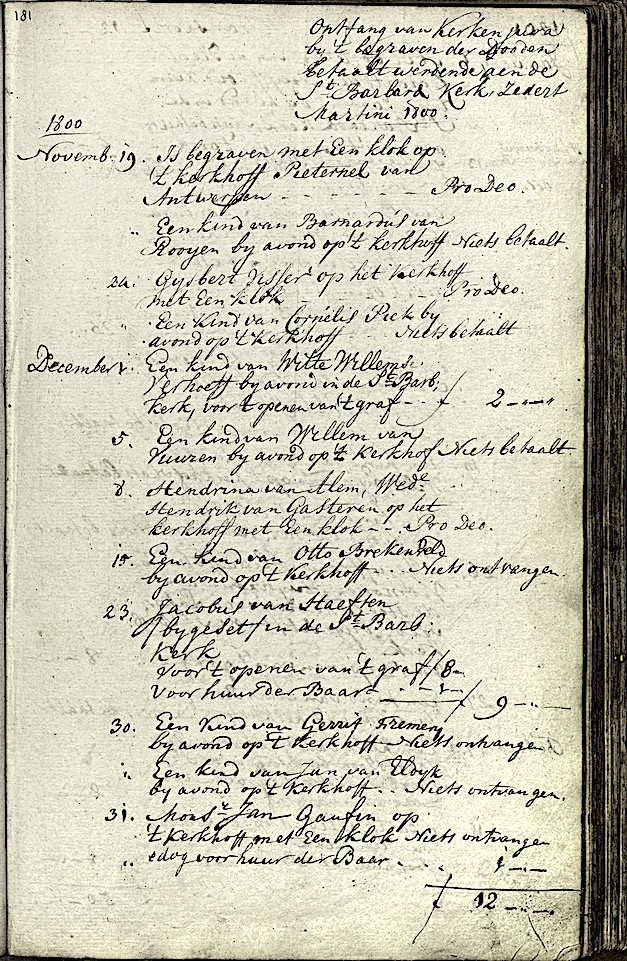 181
Ontfang van Kerken jura
by 't begraven der Dooden
betaalt werdende aen de
St. Barbara Kerk, Zedert
Martini 1800.
1800
Novemb. 19. Is begraven met Een klok op
't kerkhoff Pieternel van
Antwerpen - - - - Pro Deo.
" Een kind van Barnardus van
Rooyen by avond op 't kerkhoff Niets betaalt.
Gysbert op het kerkhoff
met Een klok - - - Pro Deo.
" Een Kind van Cornelis Piek by
avond op 't kerkhoff - Niets betaalt
December 1. Een kind van Witte Willemse
Verhoeff by avond in de St. Barb:
kerk, voor 't openen van 't graf - - f 2 - " - "
5. Een kind van Willem van
Vuuren by avond op 't kerkhof Niets betaalt
8. Hendrina van Alem, Wede.
Hendrik van Gasteren op het
kerkhoff met Een klok - - Pro Deo.
15. Een kind van Otto Brekenveld
by avond op 't kerkhoff - - Niets ontvangen.
23. Jacobus van Staeften
/bygeset/ in de St. Barb.
Kerk
voor 't openen van 't graf / 8 -
voor huur der Baar - - - 1 - / 9 - " -
30. Een Kind van Gerrit Fremery
by avond op 't kerkhoff - Niets ontvangen
" Een kind van Jan van Uyk
by avond op 't kerkhoff - - Niets ontvangen.
31. Monsr. Jan Gaufin op
't kerkhoff met Een klok Niets ontvangen
" edog voor huur der Baar - - 1 - " -
f 12 - " -